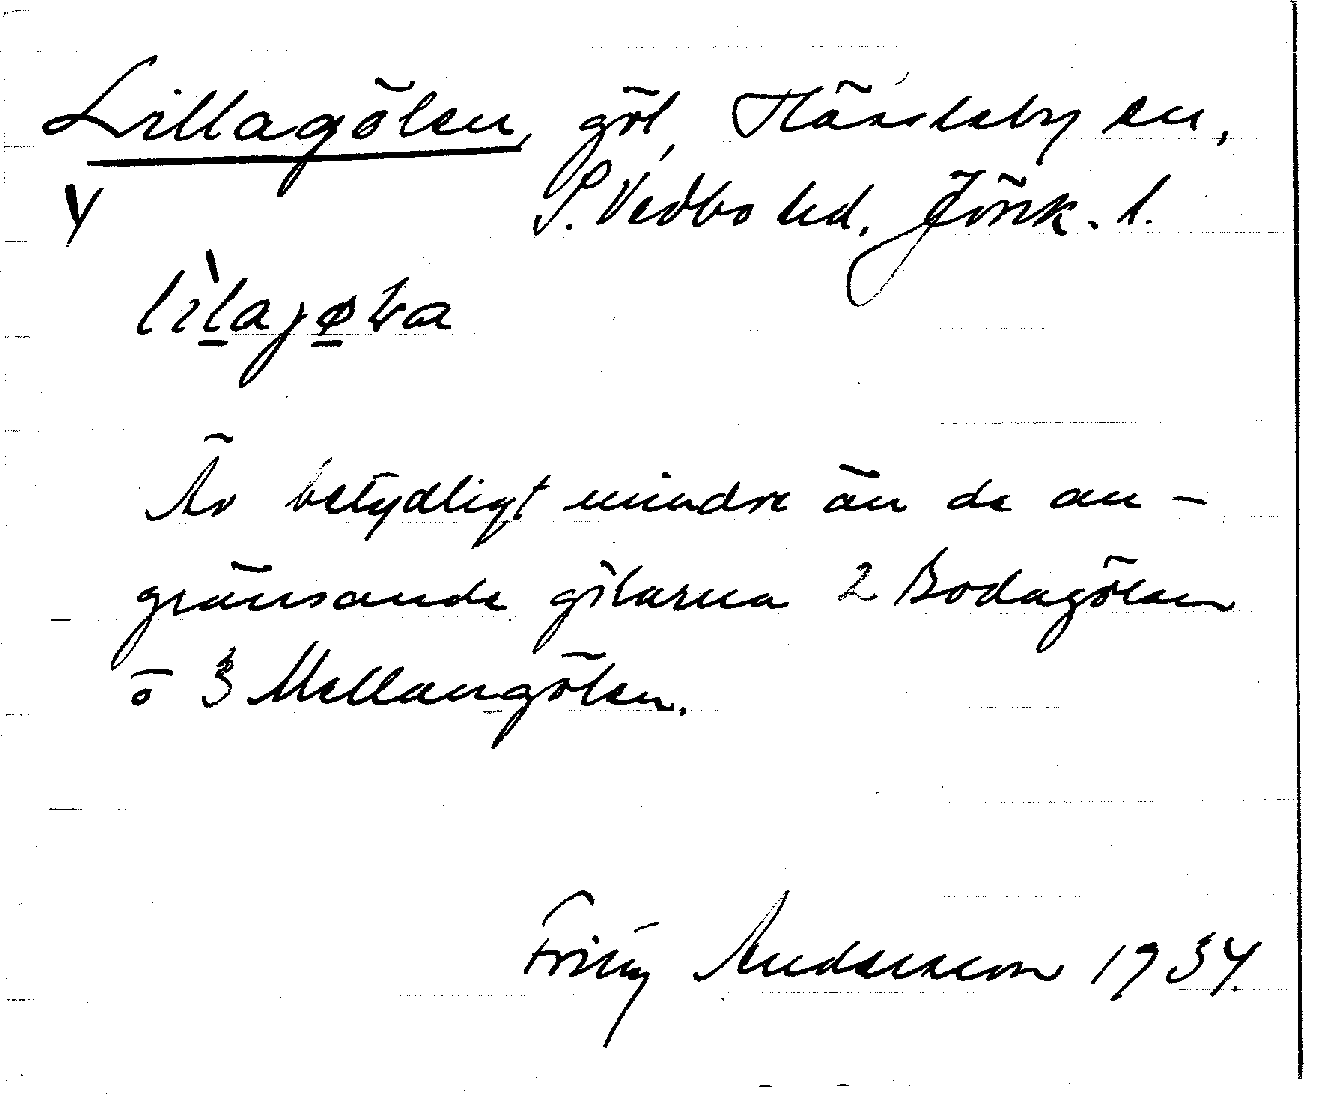 Lillagölen, göl, Hässleby sn,
S. Vedbo hd. Jönk. l.
y
lìlajøla
Är betydligt mindre än de an-
gränsande gölarna 2 Bodagölen
o 3 Mellangölen.
Fritz Andersson 1934.